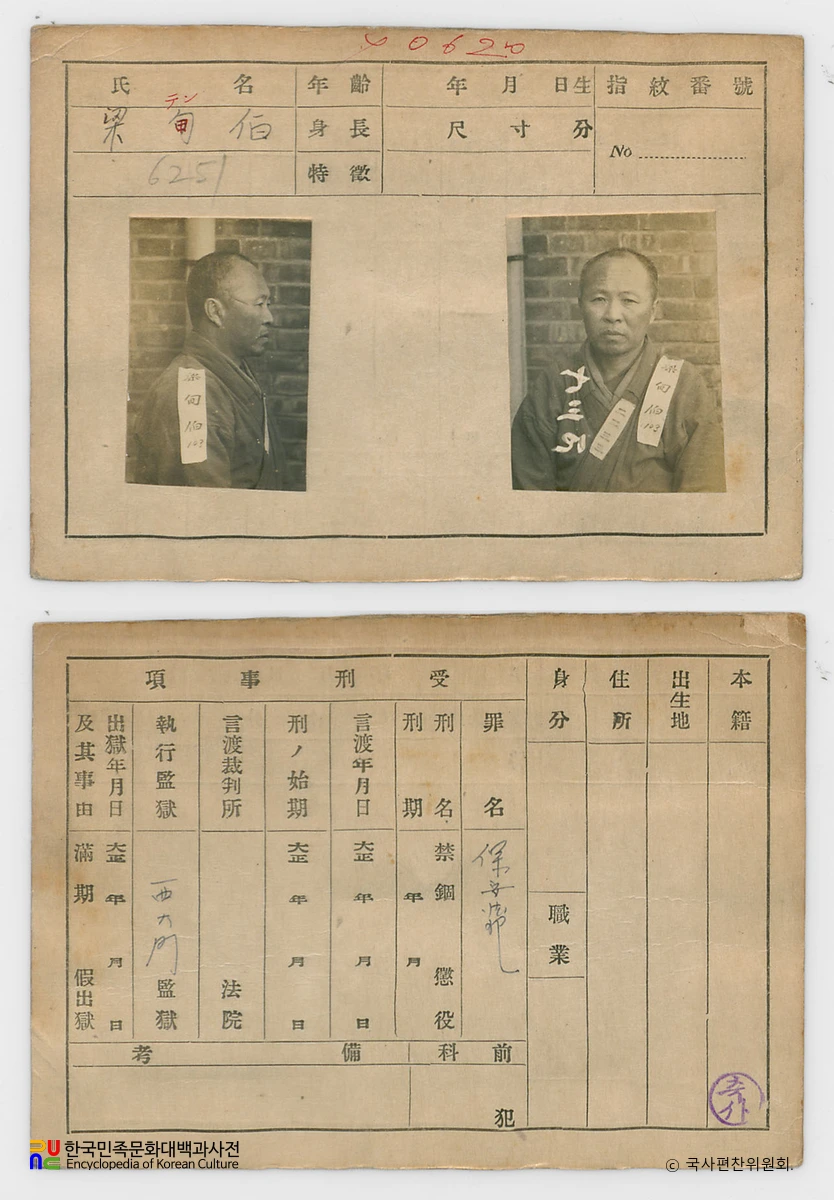 4 0620
氏名 年齡 年月日生 指紋番號
テン
梁甸伯 身長 尺寸分 No
6251 特徵
甸伯 103
十三
甸伯 103
受刑事項
本籍
出生地
住所
身分
職業
罪名
保安法
刑名 禁錮 懲役
刑期 年 月
言渡年月日 大正 年 月 日
刑ノ始期 大正 年 月 日
言渡裁判所 法院
執行監獄 西大門 監獄
出獄年月日 大正 年 月 日
及其事由 滿期 假出獄
前科 犯
備考
한국민족문화대백과사전
Encyclopedia of Korean Culture
© 국사편찬위원회.